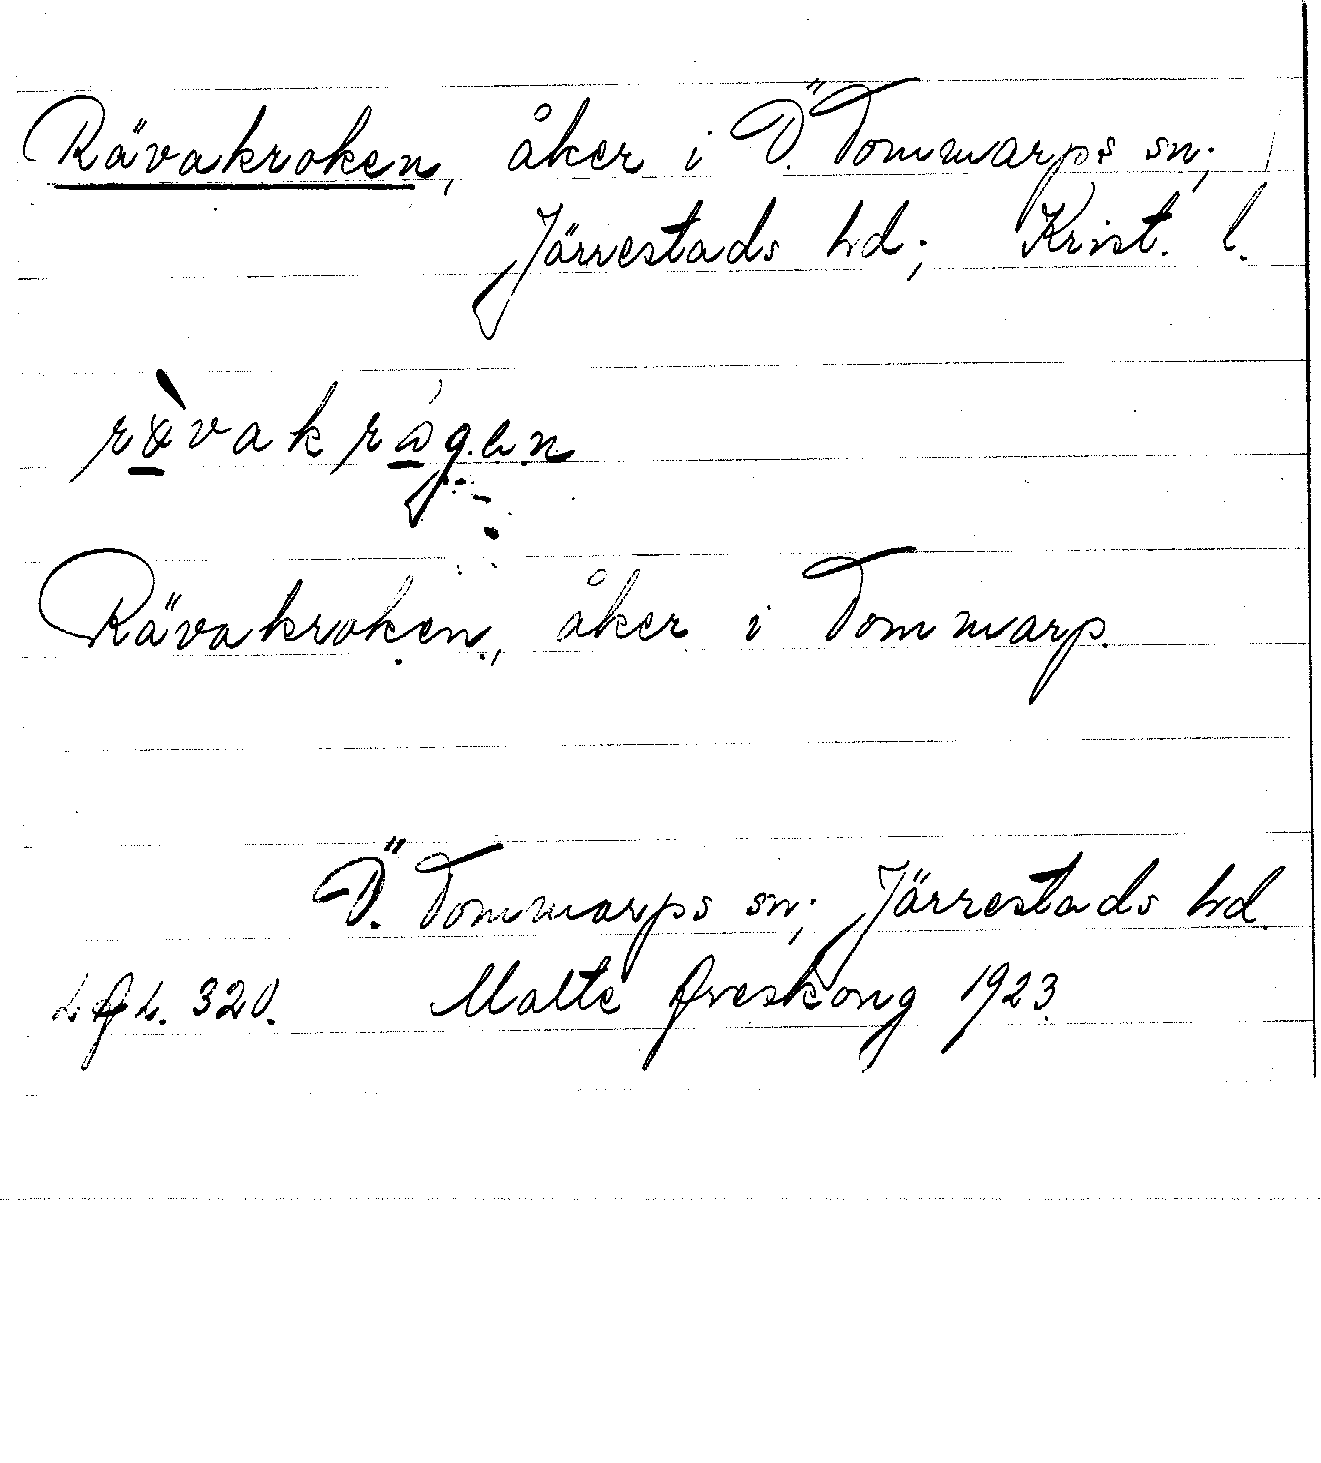 Rävakroken, åker i Ö. Tommarps sn;
Järrestads hd; Krist. l.
rävakrågen
Rävakroken, åker i Tommarp.
Ö. Tommarps sn; Järrestads hd.
320. Malte Areskoug 1923.